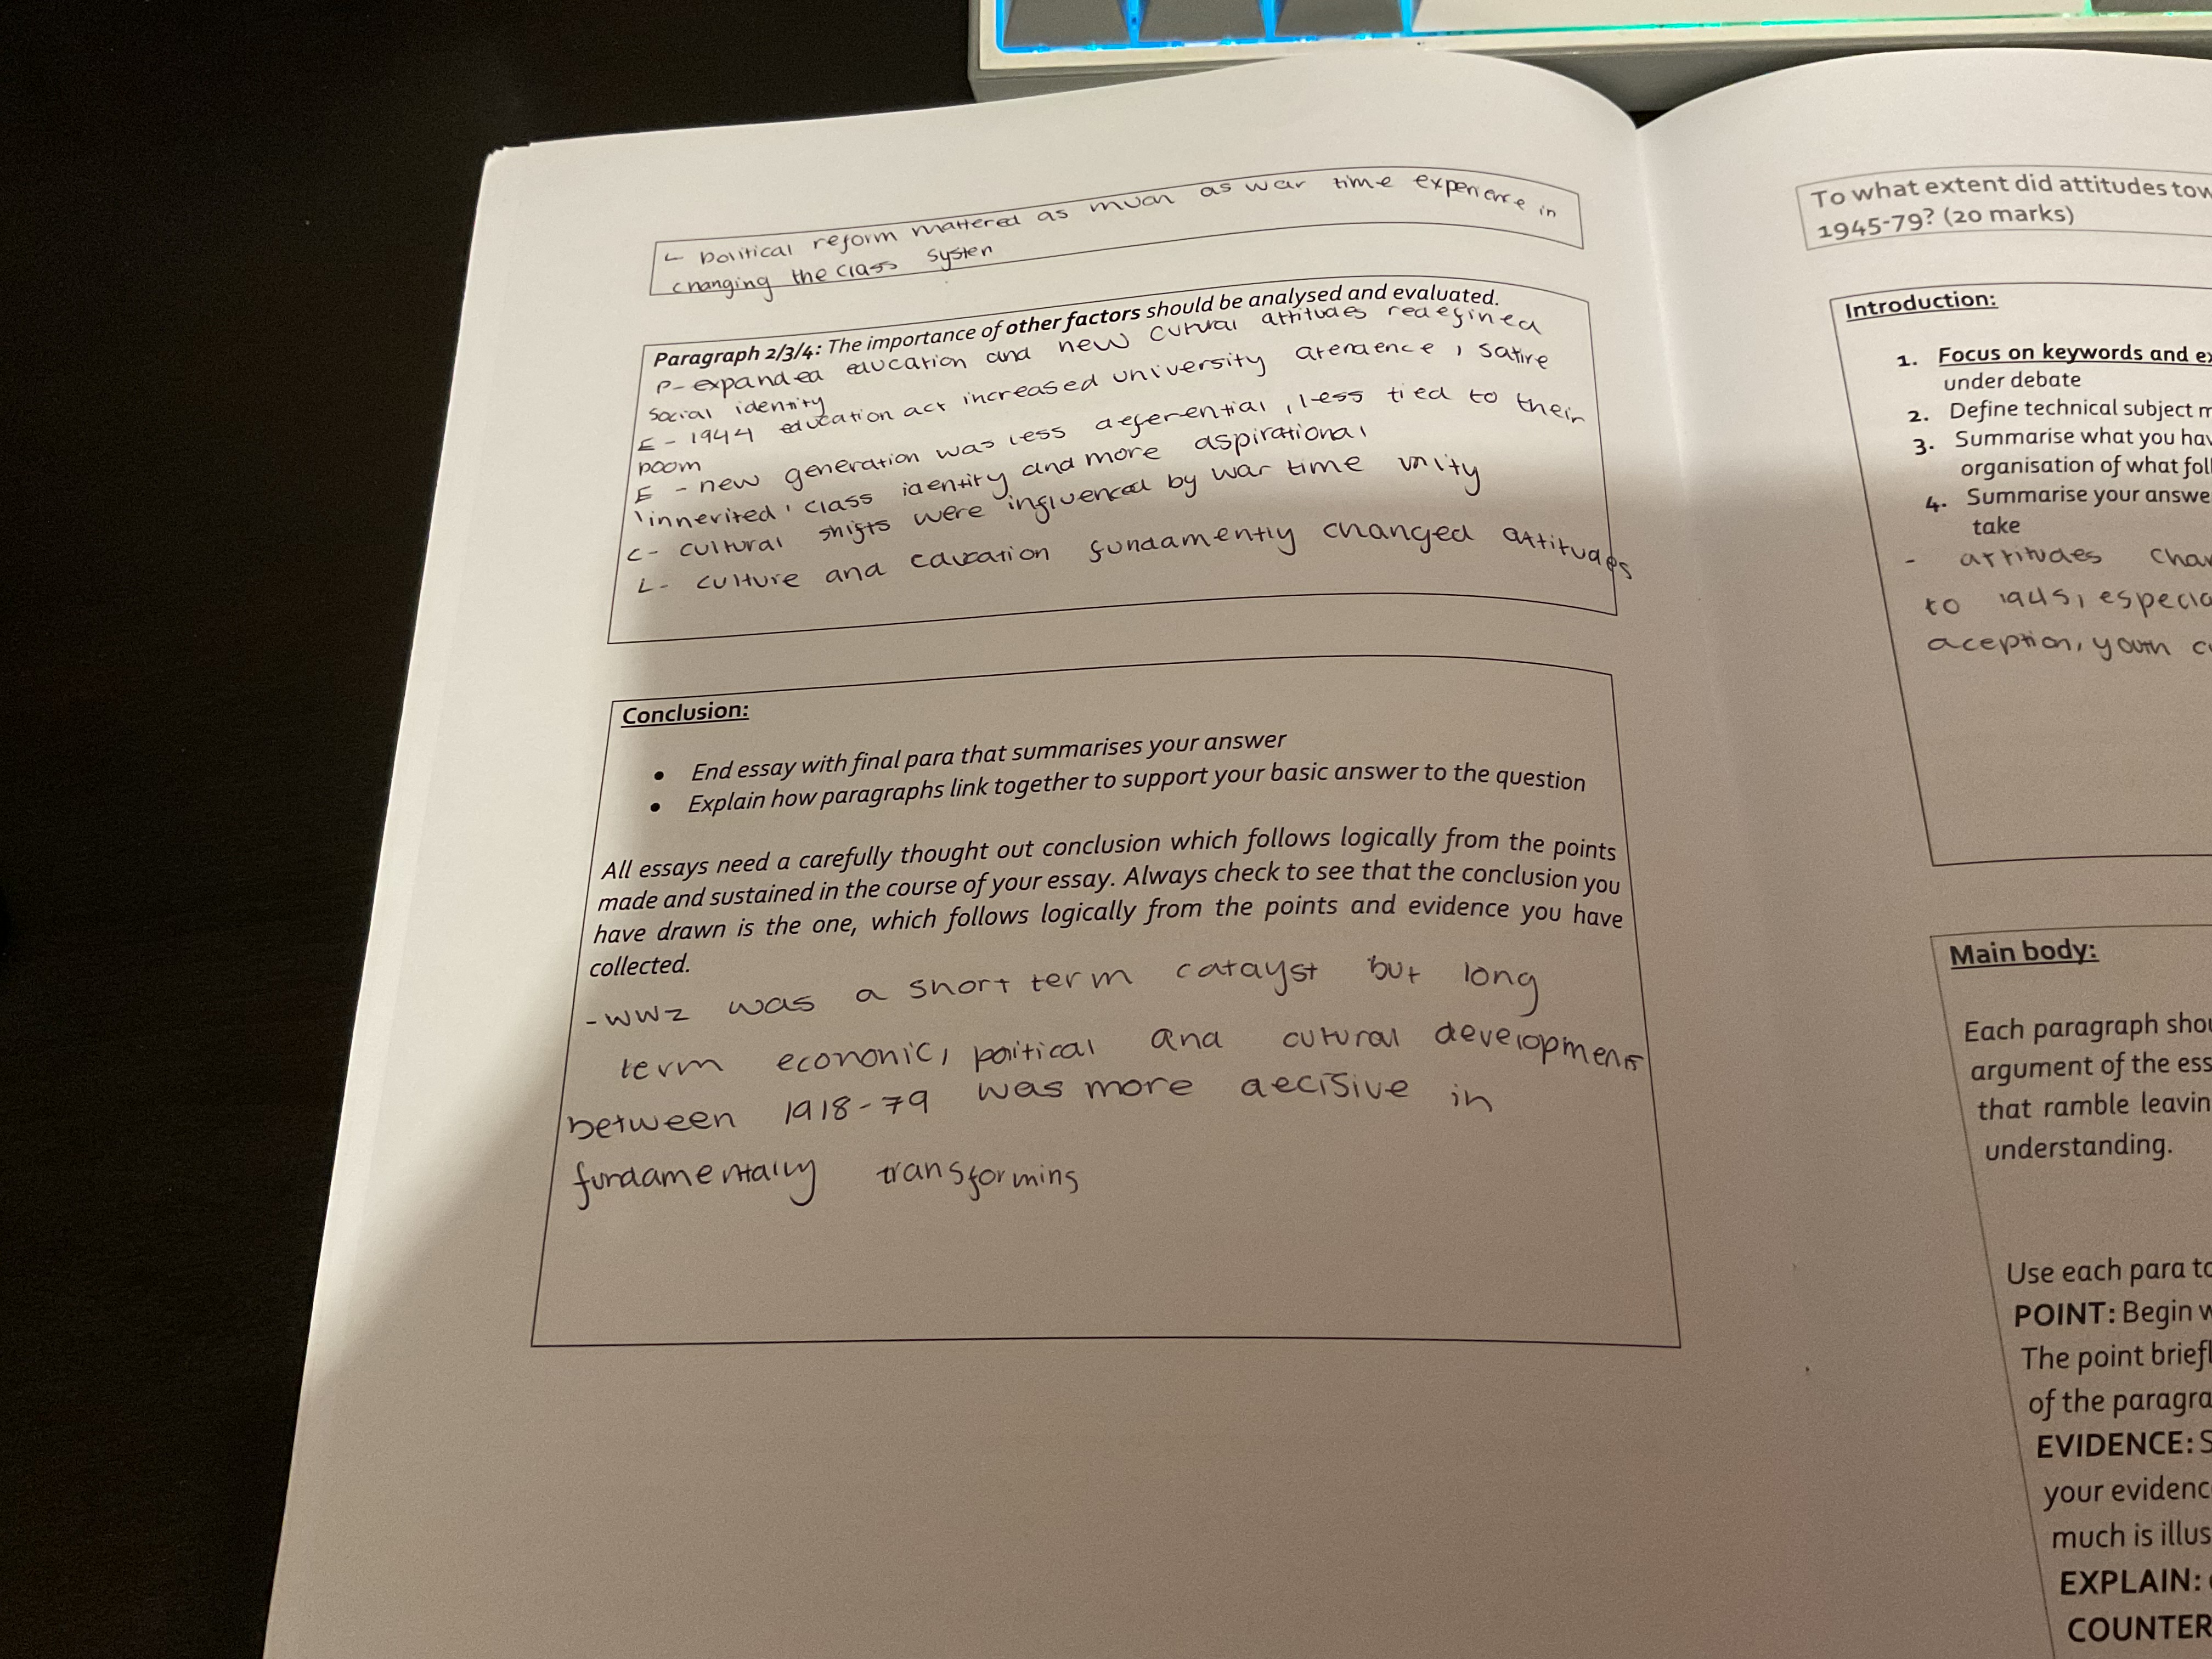 L- political reform mattered as much as war time experience in
changing the class system
Paragraph 2/3/4: The importance of other factors should be analysed and evaluated.
P- expanded education and new cutural attitudes redefined
social identity
E - 1944 education act increased university atendence, satire
boom
E - new generation was less deferential, less tied to their
'inherited' class identity and more aspirational
C- cultural shifts were influenced by war time unity
L- culture and education fundamently changed attitudes
Conclusion:
• End essay with final para that summarises your answer
• Explain how paragraphs link together to support your basic answer to the question
All essays need a carefully thought out conclusion which follows logically from the points
made and sustained in the course of your essay. Always check to see that the conclusion you
have drawn is the one, which follows logically from the points and evidence you have
collected.
- WW2 was a short term catayst but long
term economic, political and cutural developments
between 1918-79 was more decisive in
fundamentally transforming
To what extent did attitudes tow
1945-79? (20 marks)
Introduction:
1. Focus on keywords and ex
under debate
2. Define technical subject m
3. Summarise what you hav
organisation of what foll
4. Summarise your answe
take
- attitudes chan
to especia
aception, youth c
Main body:
Each paragraph shou
argument of the ess
that ramble leavin
understanding.
Use each para to
POINT: Begin w
The point briefl
of the paragra
EVIDENCE: S
your evidenc
much is illus
EXPLAIN:
COUNTER